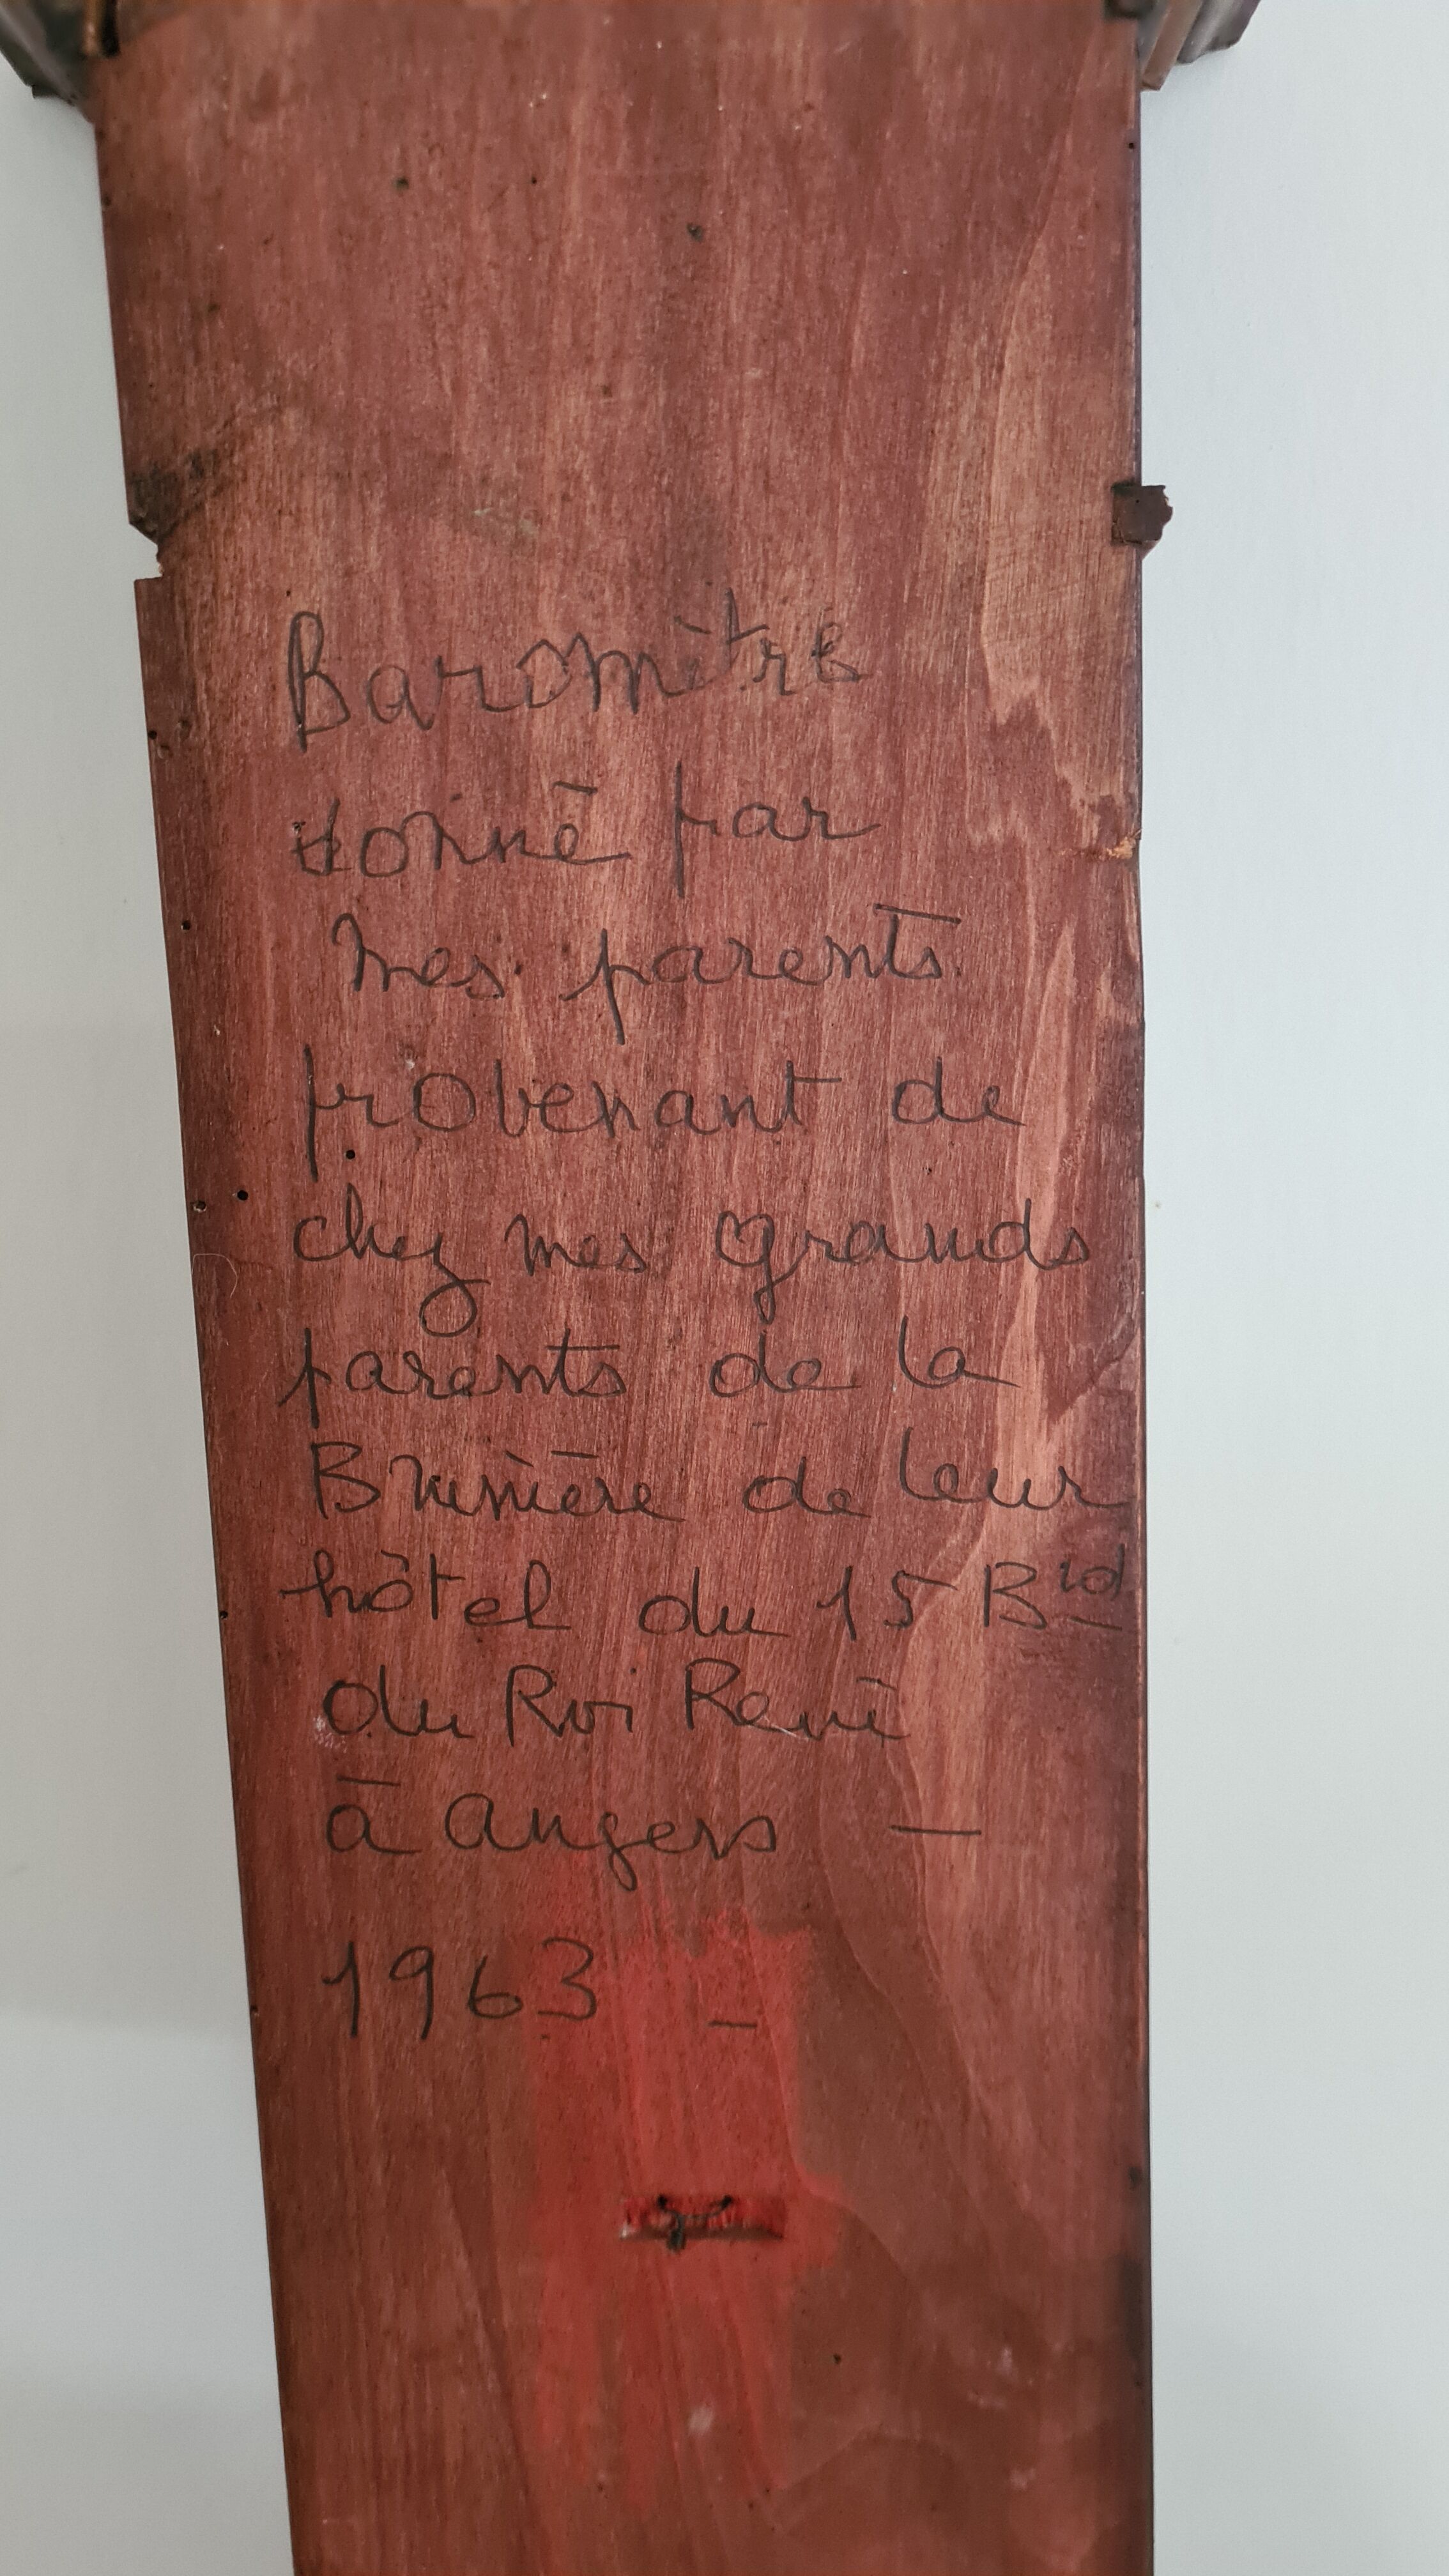 Baromètre
donné par
mes parents
provenant de
chez mes grands
parents de la
Brunière de leur
hôtel du 15 Bld
du Roi René
à Angers —
1963 _